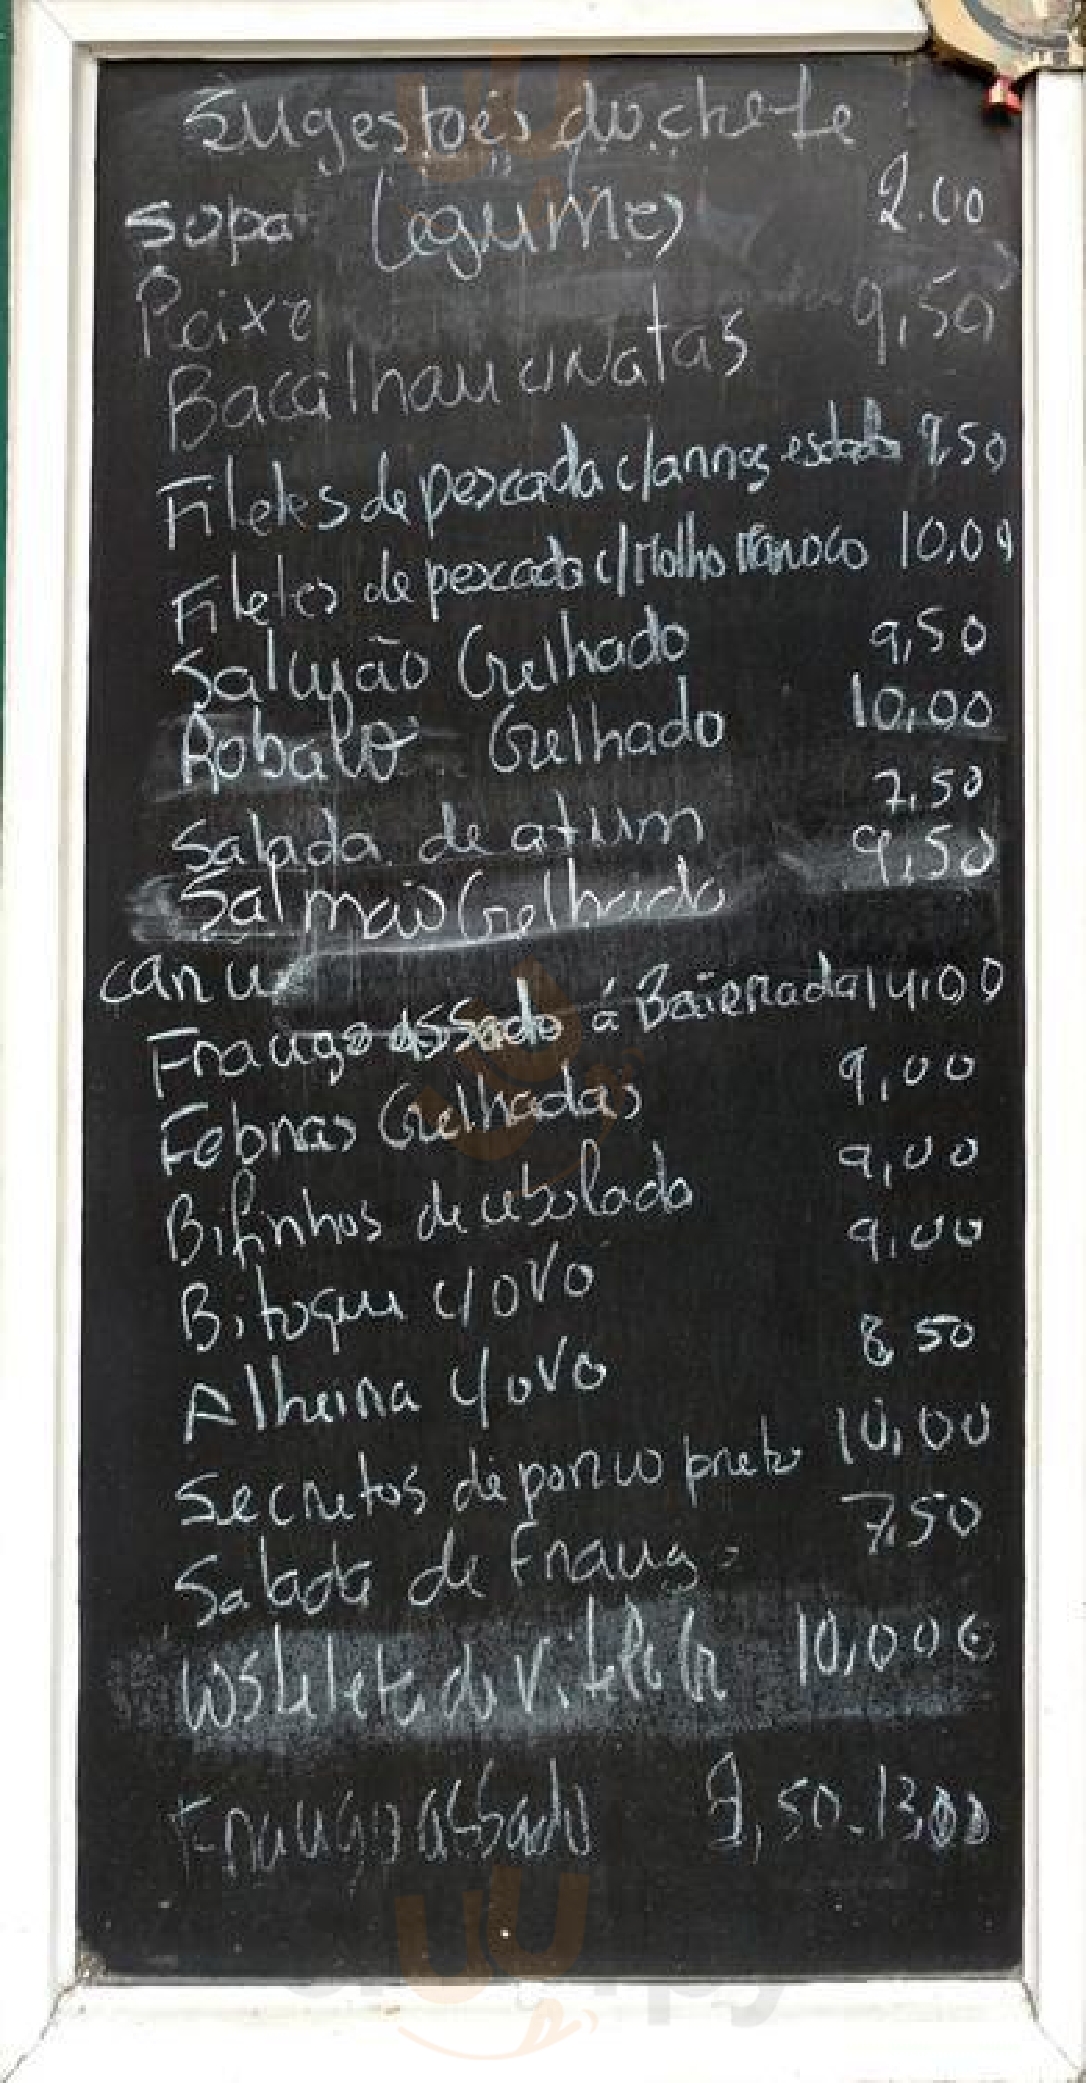 Sugestões do chefe
Sopa Legumes 2.00
Peixe
Bacalhau c/Natas 9,50
Filetes de pescada c/arroz 9,50
Filetes de pescada c/Molho 10,00
Salmão Grelhado 9,50
Robalo Grelhado 10,00
Salada de atum 7,50
Salmão Grelhado 9,50
Carne
Frango assado á Bairrada 14,00
Febras Grelhadas 9,00
Bifinhos de cebolada 9,00
Bitoque c/ovo 9,00
Alheira c/ovo 8,50
Secretos de porco preto 10,00
Salada de Frango 7,50
Costeleta de Vitela 10,00€
Frango assado ,50-13,00